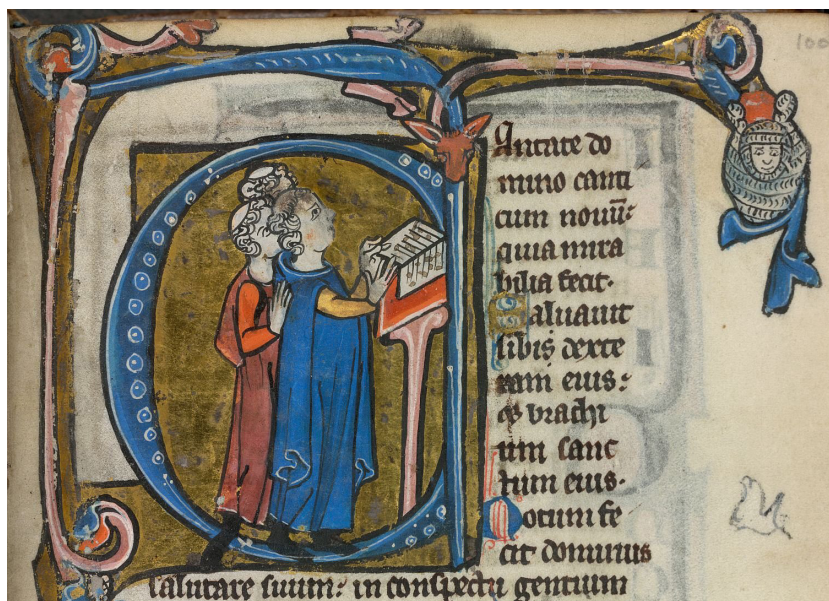 100
Antate do
mino canti
cum nouū:
quia mira
bilia fecit.
Saluauit
sibi dexte
ram eius:
et brachi
um sanc
tum eius.
Notum fe
cit dominus
salutare suum: in conspectu gentium